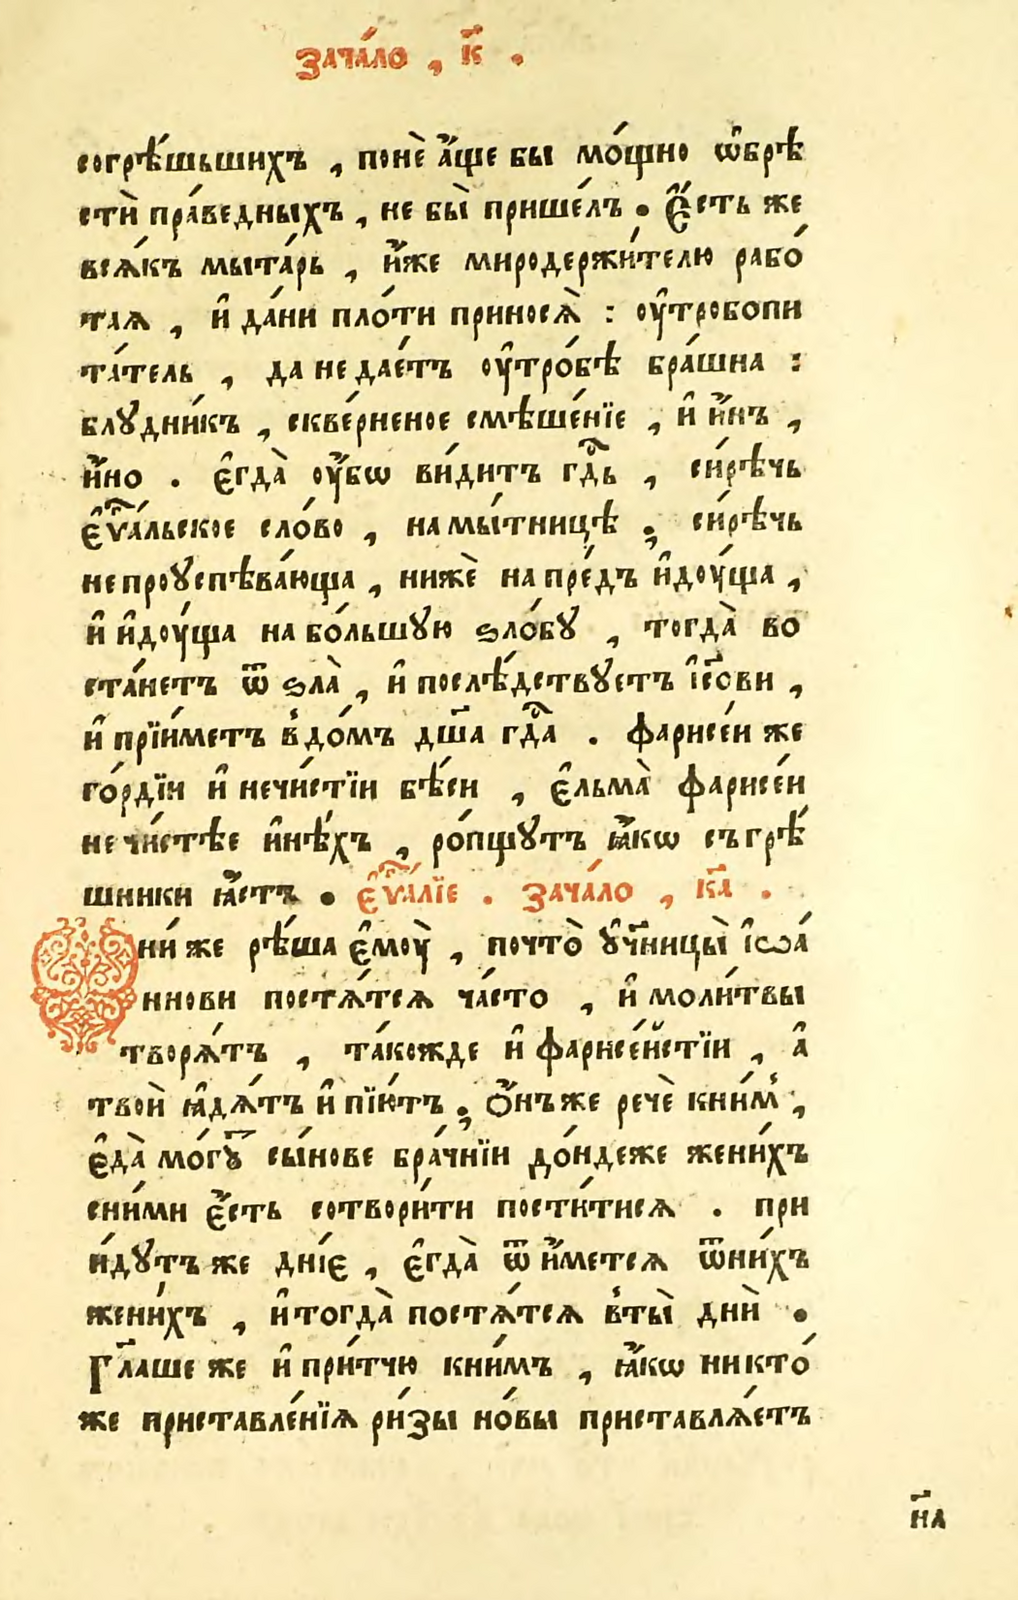 зача́ло , к҃ .
согрѣ́шьшихъ , понѐ а҆́ще бы мо́щно ѡ҆брѣ
стѝ пра́ведныхъ , не бы̀ прише́лъ . Є҆́сть же
всѧ́къ мыта́рь , и҆́же миродержи́телю рабо́
таѧ , и҆ да́ни пло́ти приносѧ̀ : ᲂу҆тробопи
та́тель , да не дае́тъ ᲂу҆тро́бѣ бра́шна :
блꙋдни́къ , скве́рненое смѣше́нїе , и҆ и҆́нъ ,
и҆́но . є҆гда̀ ᲂу҆́бѡ ви́дитъ гдⷭ҇ь , си́рѣчь
є҆ѵⷢ҇а́льское сло́во , на мы́тницѣ ; си́рѣчь
не проꙋспѣва́юща , нижѐ на пре́дъ и҆дᲂу́ща ,
и҆ и҆дᲂу́ща на бо́льшꙋю ѕло́бꙋ , тогда̀ во
ста́нетъ ѿ ѕла̀ , и҆ послѣ́дствꙋетъ і҆сⷭ҇ови ,
и҆ прїи́метъ в̾до́мъ дш҃а гдⷭ҇а . фарисе́и же
го́рдїи и҆ нечи́стїи бѣ́си , є҆льма̀ фарисе́и
не чи́стѣе и҆нѣ́хъ , ро́пщꙋтъ ꙗ҆́кѡ съ грѣ́
шники ꙗ҆́стъ . є҆ѵⷢ҇а́лїе . зача́ло , к҃а .
Ѻни́ же рѣ́ша є҆мᲂу̀ , почто̀ ᲂу҆чн҃ицы̀ і҆ѡа́
ннови постѧ́тсѧ ча́сто , и҆ моли́твы
творѧ́тъ , та́кожде и҆ фарисе́йстїи , а҆
твоѝ ꙗ҆дѧ́тъ и҆ пїю́тъ ; Ѻ҆́нъ же речѐ кни́м̾ ,
є҆да̀ мо́гꙋⷮ сы́нове бра́чнїи до́ндеже жени́хъ
сни́ми є҆́сть сотвори́ти пости́тисѧ . при
и́дꙋтъ же дні́є , є҆гда̀ ѿ и҆́метсѧ ѿни́хъ
жени́хъ , и҆ тогда̀ постѧ́тсѧ в̾ты̀ днѝ .
Гл҃аше же и҆ при́тчю кни́мъ , ꙗ҆́кѡ никто́
же приставле́нїѧ ри́зы но́вы приставлѧ́етъ
н҃а